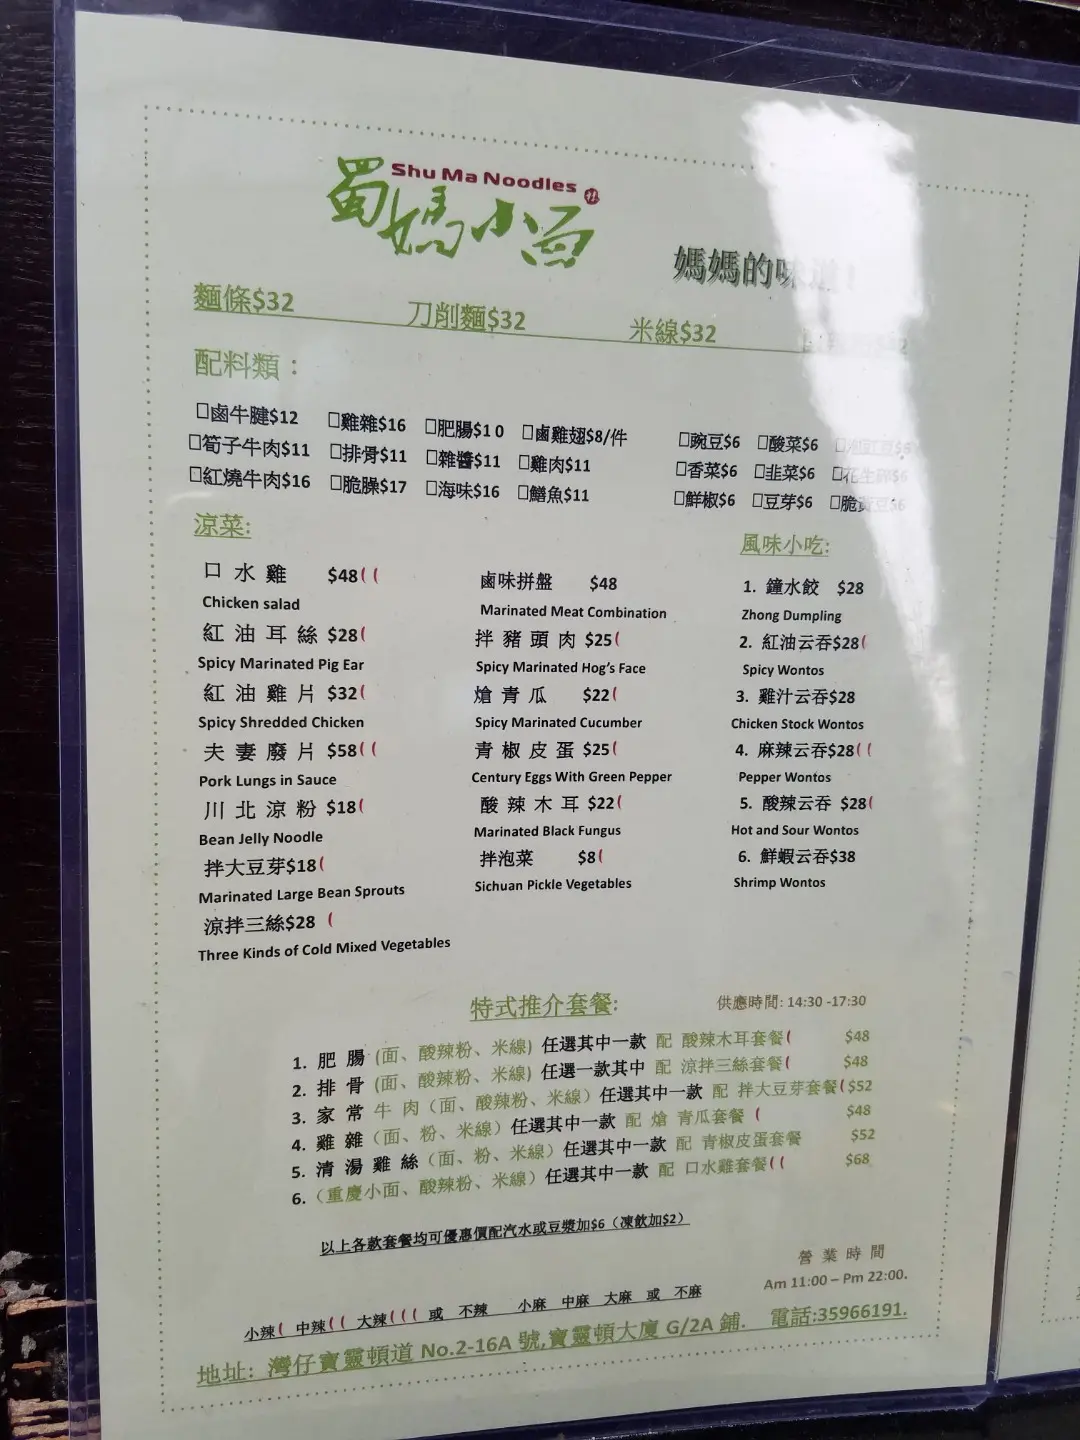 Shu Ma Noodles
蜀媽小面
媽媽的味道!
麵條$32 刀削麵$32 米線$32
配料類：
□鹵牛腱$12 □雞雜$16 □肥腸$10 □鹵雞翅$8/件 □豌豆$6 □酸菜$6
□筍子牛肉$11 □排骨$11 □雜醬$11 □雞肉$11 □香菜$6 □韭菜$6 □花生碎$6
□紅燒牛肉$16 □脆臊$17 □海味$16 □鱔魚$11 □鮮椒$6 □豆芽$6 □脆黃豆$6
涼菜:
口水雞 $48( (
Chicken salad
紅油耳絲 $28(
Spicy Marinated Pig Ear
紅油雞片 $32(
Spicy Shredded Chicken
夫妻廢片 $58( (
Pork Lungs in Sauce
川北涼粉 $18(
Bean Jelly Noodle
拌大豆芽$18(
Marinated Large Bean Sprouts
涼拌三絲$28 (
Three Kinds of Cold Mixed Vegetables
鹵味拼盤 $48
Marinated Meat Combination
拌豬頭肉 $25(
Spicy Marinated Hog's Face
熗青瓜 $22(
Spicy Marinated Cucumber
青椒皮蛋 $25(
Century Eggs With Green Pepper
酸辣木耳 $22(
Marinated Black Fungus
拌泡菜 $8(
Sichuan Pickle Vegetables
風味小吃:
1. 鐘水餃 $28
Zhong Dumpling
2. 紅油云吞$28(
Spicy Wontos
3. 雞汁云吞$28
Chicken Stock Wontos
4. 麻辣云吞$28( (
Pepper Wontos
5. 酸辣云吞 $28(
Hot and Sour Wontos
6. 鮮蝦云吞$38
Shrimp Wontos
特式推介套餐: 供應時間: 14:30 -17:30
1. 肥腸 (面、酸辣粉、米線) 任選其中一款 配 酸辣木耳套餐( $48
2. 排骨 (面、酸辣粉、米線) 任選一款其中 配 涼拌三絲套餐( $48
3. 家常牛肉（面、酸辣粉、米線）任選其中一款 配 拌大豆芽套餐( $52
4. 雞雜（面、粉、米線）任選其中一款 配 熗 青瓜套餐 ( $48
5. 清湯雞絲（面、粉、米線）任選其中一款 配 青椒皮蛋套餐 $52
6.（重慶小面、酸辣粉、米線）任選其中一款 配 口水雞套餐( ( $68
以上各款套餐均可優惠價配汽水或豆漿加$6（凍飲加$2）
營業時間
Am 11:00 – Pm 22:00.
小辣( 中辣( ( 大辣( ( ( 或 不辣 小麻 中麻 大麻 或 不麻
地址: 灣仔寶靈頓道 No.2-16A 號,寶靈頓大廈 G/2A 鋪. 電話:35966191.